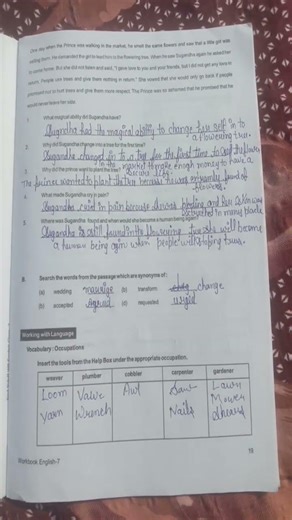 One day when the Prince was walking in the market, he smelt the same flowers and saw that a little girl was
selling them. He commanded the girl to lead him to the flowering tree. When he saw Sugandha again he asked her
to come home. But she did not listen and said, "I gave love to you and your friends, but I did not get any love in
return. People cut trees and give them nothing in return." She swore that she would only go back if people
promised not to hurt trees and give them more respect. The Prince was so ashamed that he promised that he
would never leave her side.
1. What magical ability did Sugandha have?
Sugandha had the magical ability to change her self in to
a flowering tree.
2. Why did Sugandha change into a tree for the first time?
Sugandha changed in to a tree for the first time to sell the flowers
in the market to make enough money to have a
3. Why did the prince want to plant the tree?
The prince wanted to plant the tree because he was extremely fond of
flowers.
4. What made Sugandha cry in pain?
Sugandha cried in pain because she was bleeding and her skin was
in many places
5. Where was Sugandha found and when would she become a human being again?
Sugandha is still found in the flowering tree she will become
a human being again when people will stop trees.
B. Search the words from the passage which are synonyms of:
(a) wedding marriage (b) transform change
(b) accepted Agreed (d) requested urged
Working with Language
Vocabulary: Occupations
Insert the tools from the Help Box under the appropriate occupation.
weaver plumber cobbler carpenter gardener
Loom Valve Awl Saw Lawn
Mower
Yarn Wrench Nails Shears
15
Workbook English-7